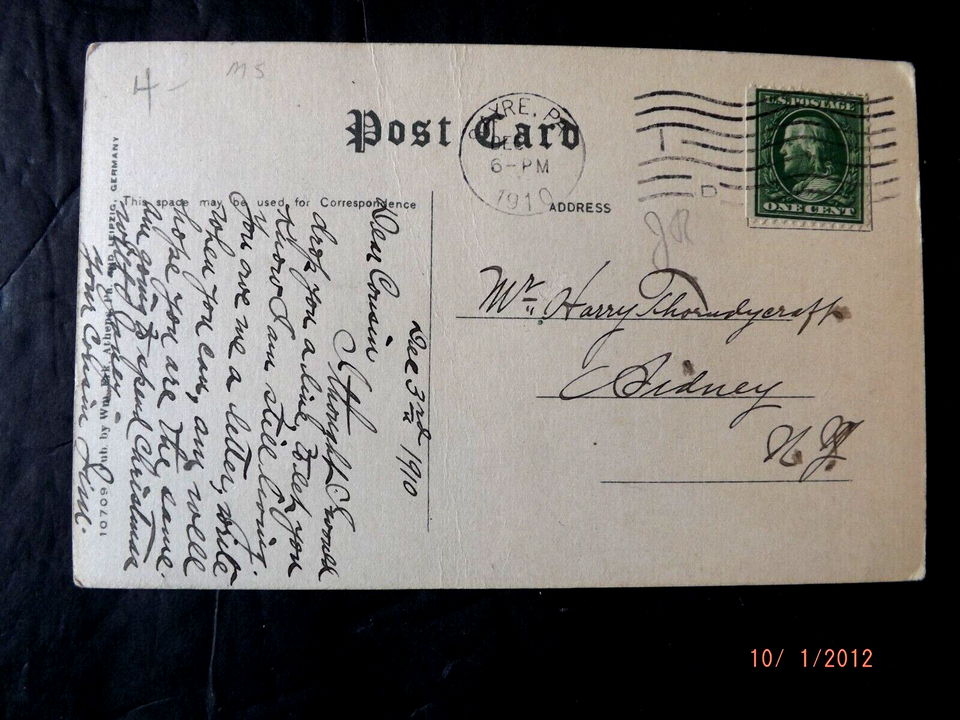 4-
MS
Post Card
This space may be used for Correspondence
ADDRESS
YRE, P
DEC
6-PM
1910
D
U.S. POSTAGE
ONE CENT
JR
Mr. Harry Thorndycraft
Sidney
N. Y.
Dec 3rd 1910
Dear Cousin
Thought I would
drop you a line, to let you
know I am still living.
You owe me a letter, write
when you can, any well
hope you are the same.
Am going to spend Christmas
Your Cousin Jim.
107098 Pub. by Wm. Athens, Pa. LEIPZIG, GERMANY
10/ 1/2012